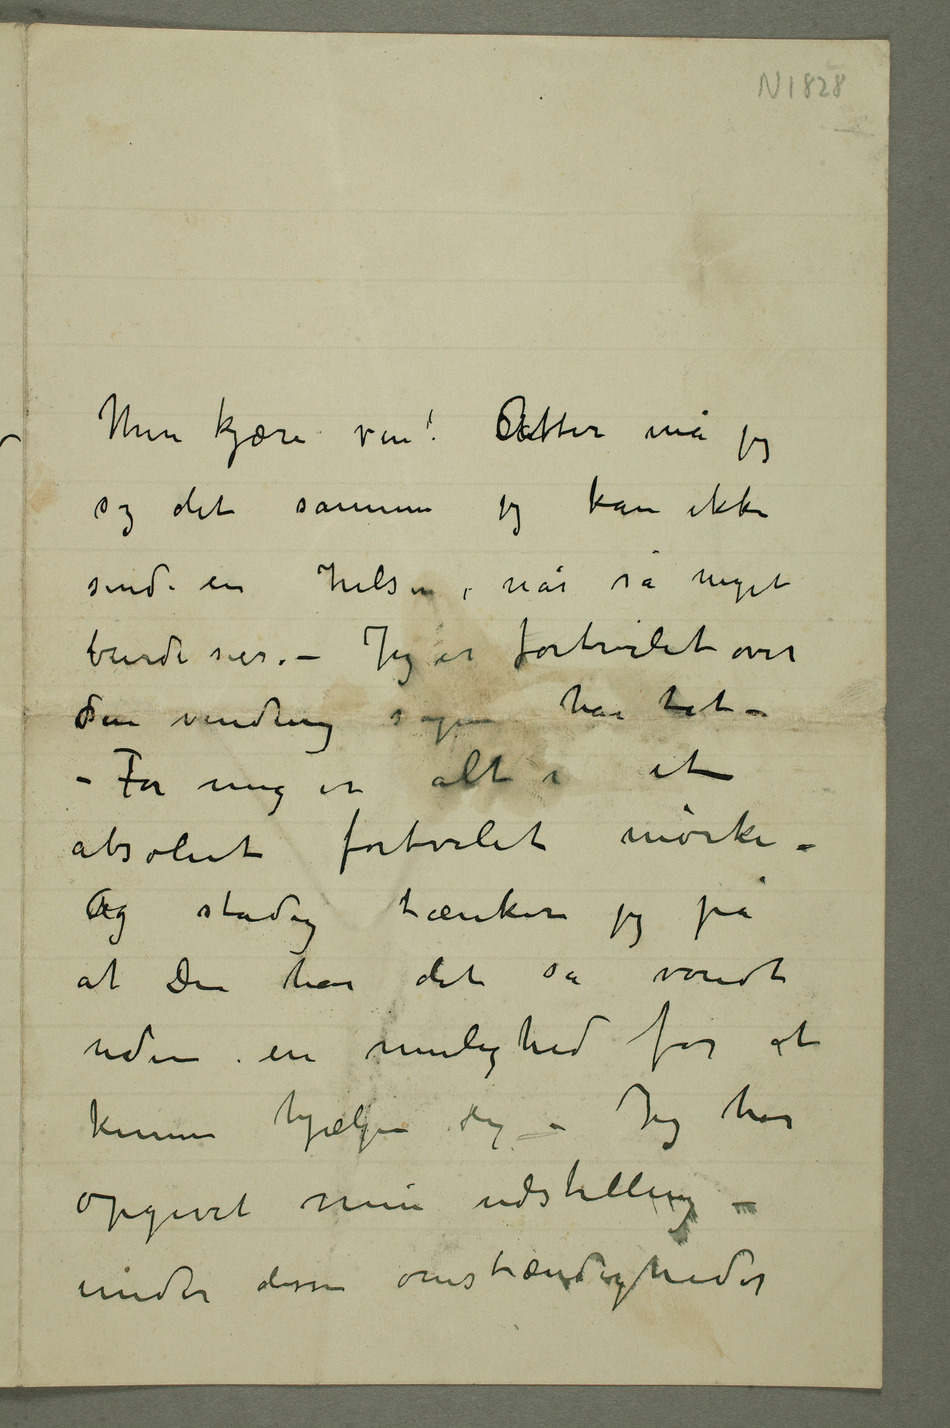 N 1828
Min kjære ven! Atter må jeg
sig det samme jeg kan ikke
sende en hilsen, når så meget
burde sies. – Jeg er fortvilet over
den vending sagen har tat –
– For mig er alt i et
absolut fortvilet mörke –
Og stadig tænker jeg på
at Du har det så vondt
uden en mulighed for at
kunne hjælpe dig – Jeg har
opgivet min udstilling –
under disse omstændigheder